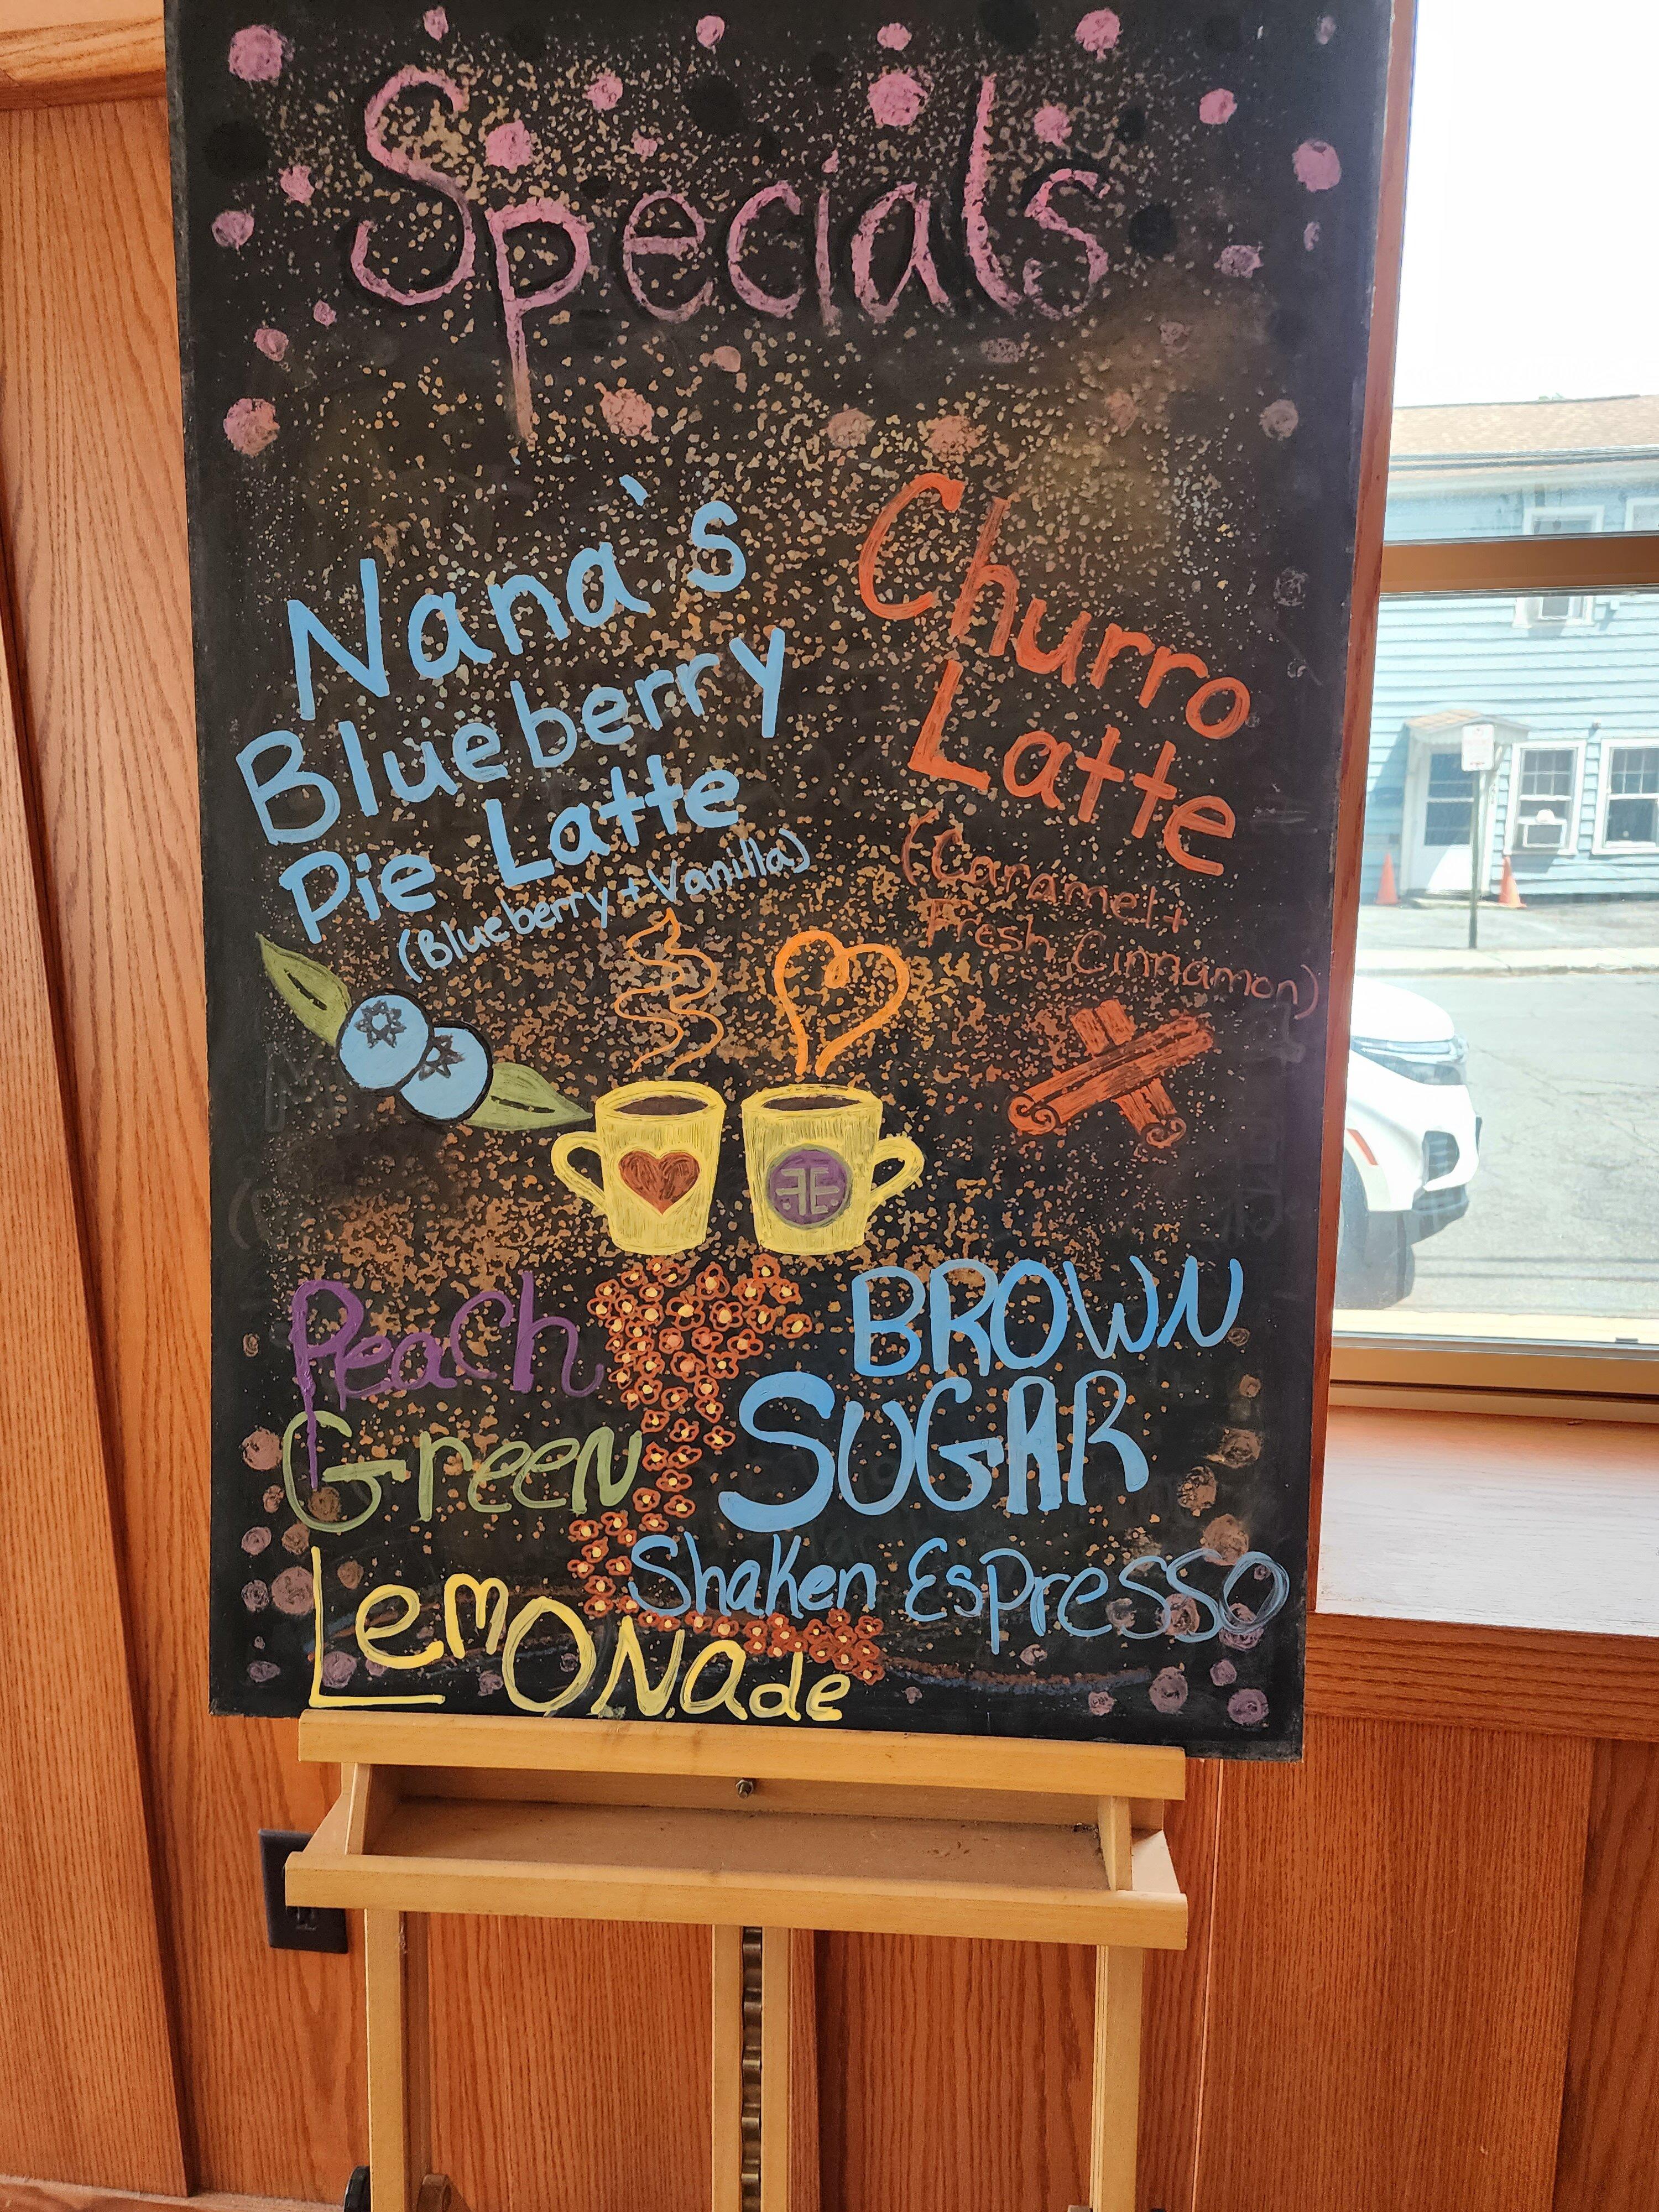 Specials
Nana's
Blueberry
Pie Latte
(Blueberry + Vanilla)
Churro
Latte
(Caramel +
Fresh Cinnamon)
Peach
Green
Lemonade
BROWN
SUGAR
Shaken Espresso